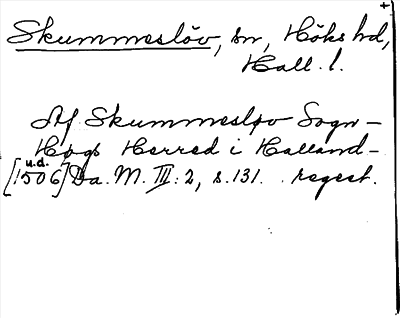 +
Skummeslöv, sn, Höks hd,
Hall. l.
Af Skummesløv Sogn –
Høgs Herred i Halland –
u.d.
[1506] Da. M. III: 2, s. 131. regest.